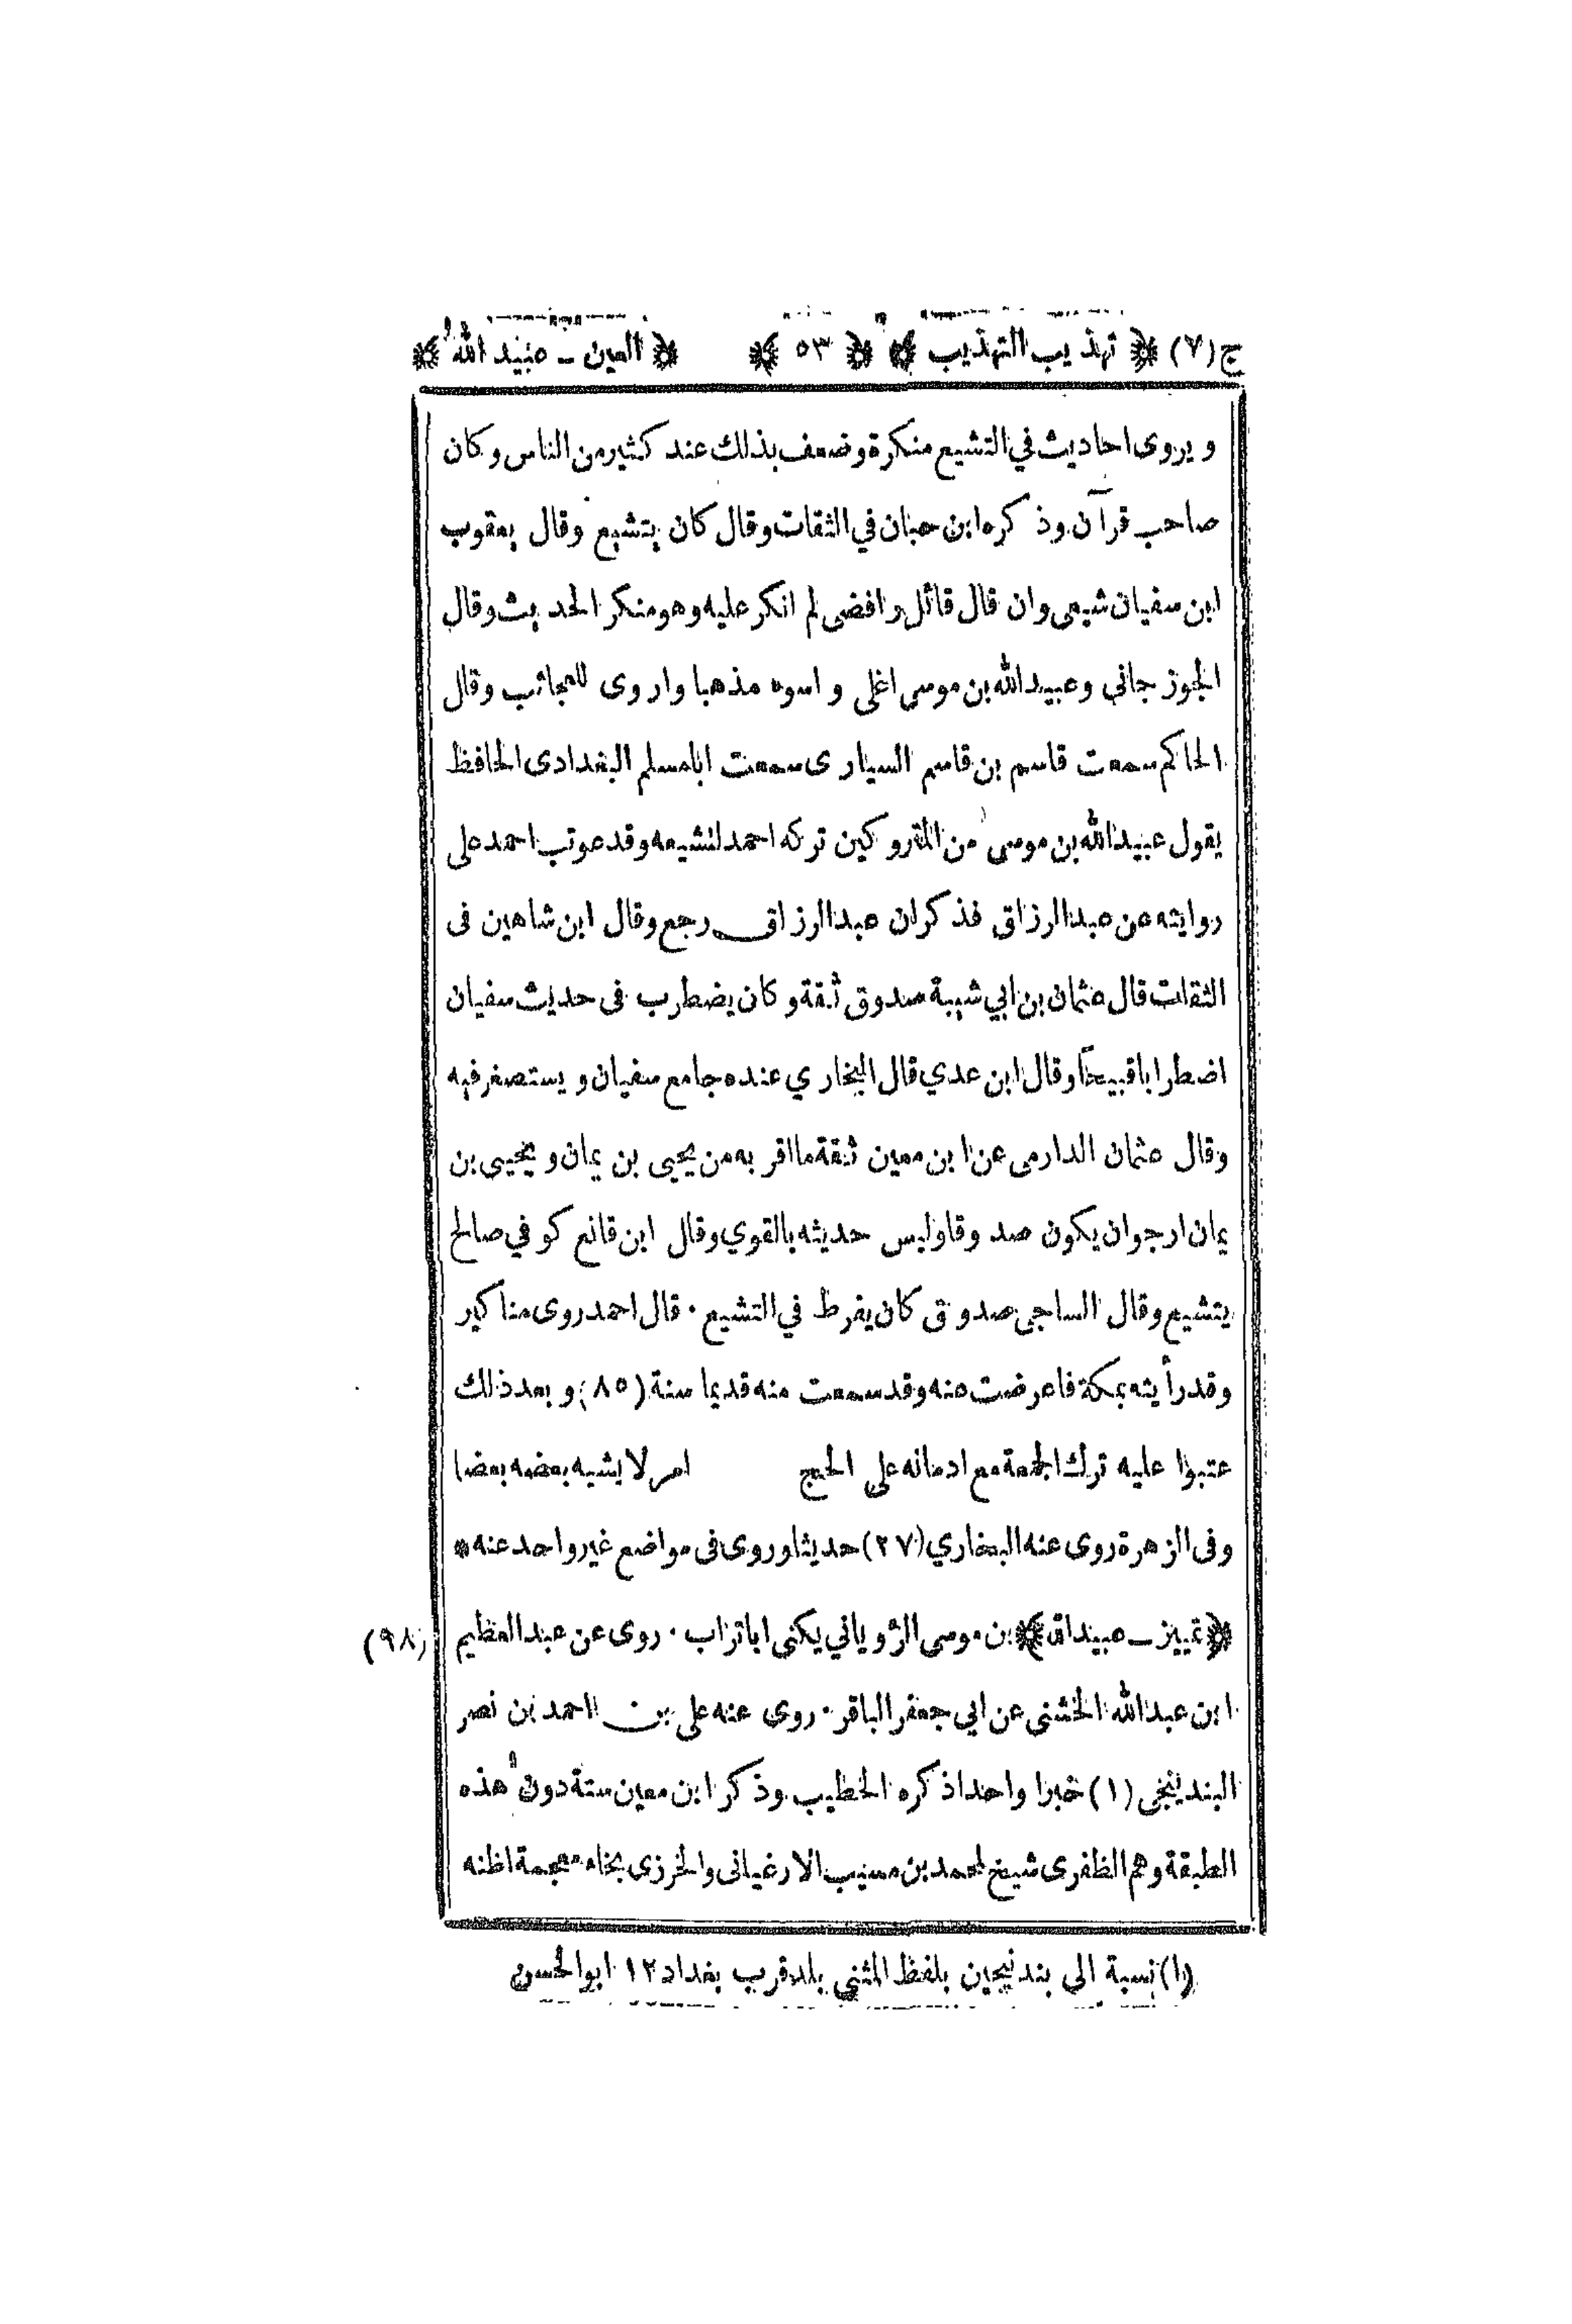 ج (٧) ﴿ تهذيب التهذيب ﴾ ﴿ ٥٣ ﴾ ﴿ العين ـ عبيد الله ﴾
و يروى احاديث في التشيع منكرة وضعف بذلك عند كثير من الناس وكان
صاحب قرآن وذكره ابن حبان في الثقات وقال كان يتشيع وقال يعقوب
ابن سفيان شيعى وان قال قائل رافضى لم انكر عليه وهو منكر الحديث وقال
الجوزجاني وعبيد الله بن موسى اغلى و اسوء مذهبا واروى للعجائب وقال
الحاكم سمعت قاسم بن قاسم السيارى سمعت ابا مسلم البغدادى الحافظ
يقول عبيد الله بن موسى من المتروكين تركه احمد لتشيعه وقد عوتب احمد على
روايته عن عبد الرزاق فذكر ان عبد الرزاق رجع وقال ابن شاهين فى
الثقات قال عثمان بن ابي شيبة صدوق ثقة وكان يضطرب فى حديث سفيان
اضطرابا قبيحًا وقال ابن عدي قال البخاري عنده جامع سفيان و يستصغر فيه
وقال عثمان الدارمى عن ابن معين ثقة ما اقر به من يحيى بن يمان و يحيى بن
يمان ارجو ان يكون صدوقا وليس حديثه بالقوي وقال ابن قانع كوفي صالح
يتشيع وقال الساجى صدوق كان يفرط في التشيع · قال احمد روى مناكير
وقد رأيته بمكة فاعرضت عنه وقد سمعت منه قديما سنة (٨٥) و بعد ذلك
عتبوا عليه ترك الجمعة مع ادمانه على الحج امر لا يشبه بعضه بعضا
وفى الزهرة روى عنه البخاري (٢٧) حديثا وروى فى مواضع غير واحد عنه *
﴿ تمييز ـ عبيد الله ﴾ بن موسى الرؤياني يكنى ابا تراب · روى عن عبد العظيم (٩٨)
ابن عبد الله الخشنى عن ابي جعفر الباقر · روى عنه على بن احمد بن نصر
البندنيجى (١) خبرا واحدا ذكره الخطيب وذكر ابن معين ستة دون هذه
الطبقة وهم الظفرى شيخ لمحمد بن مسيب الارغيانى والخرزى بخاء معجمة اظنه
(١) نسبة الى بندنيجين بلفظ المثنى بلد قرب بغداد ١٢ ابو الحسن